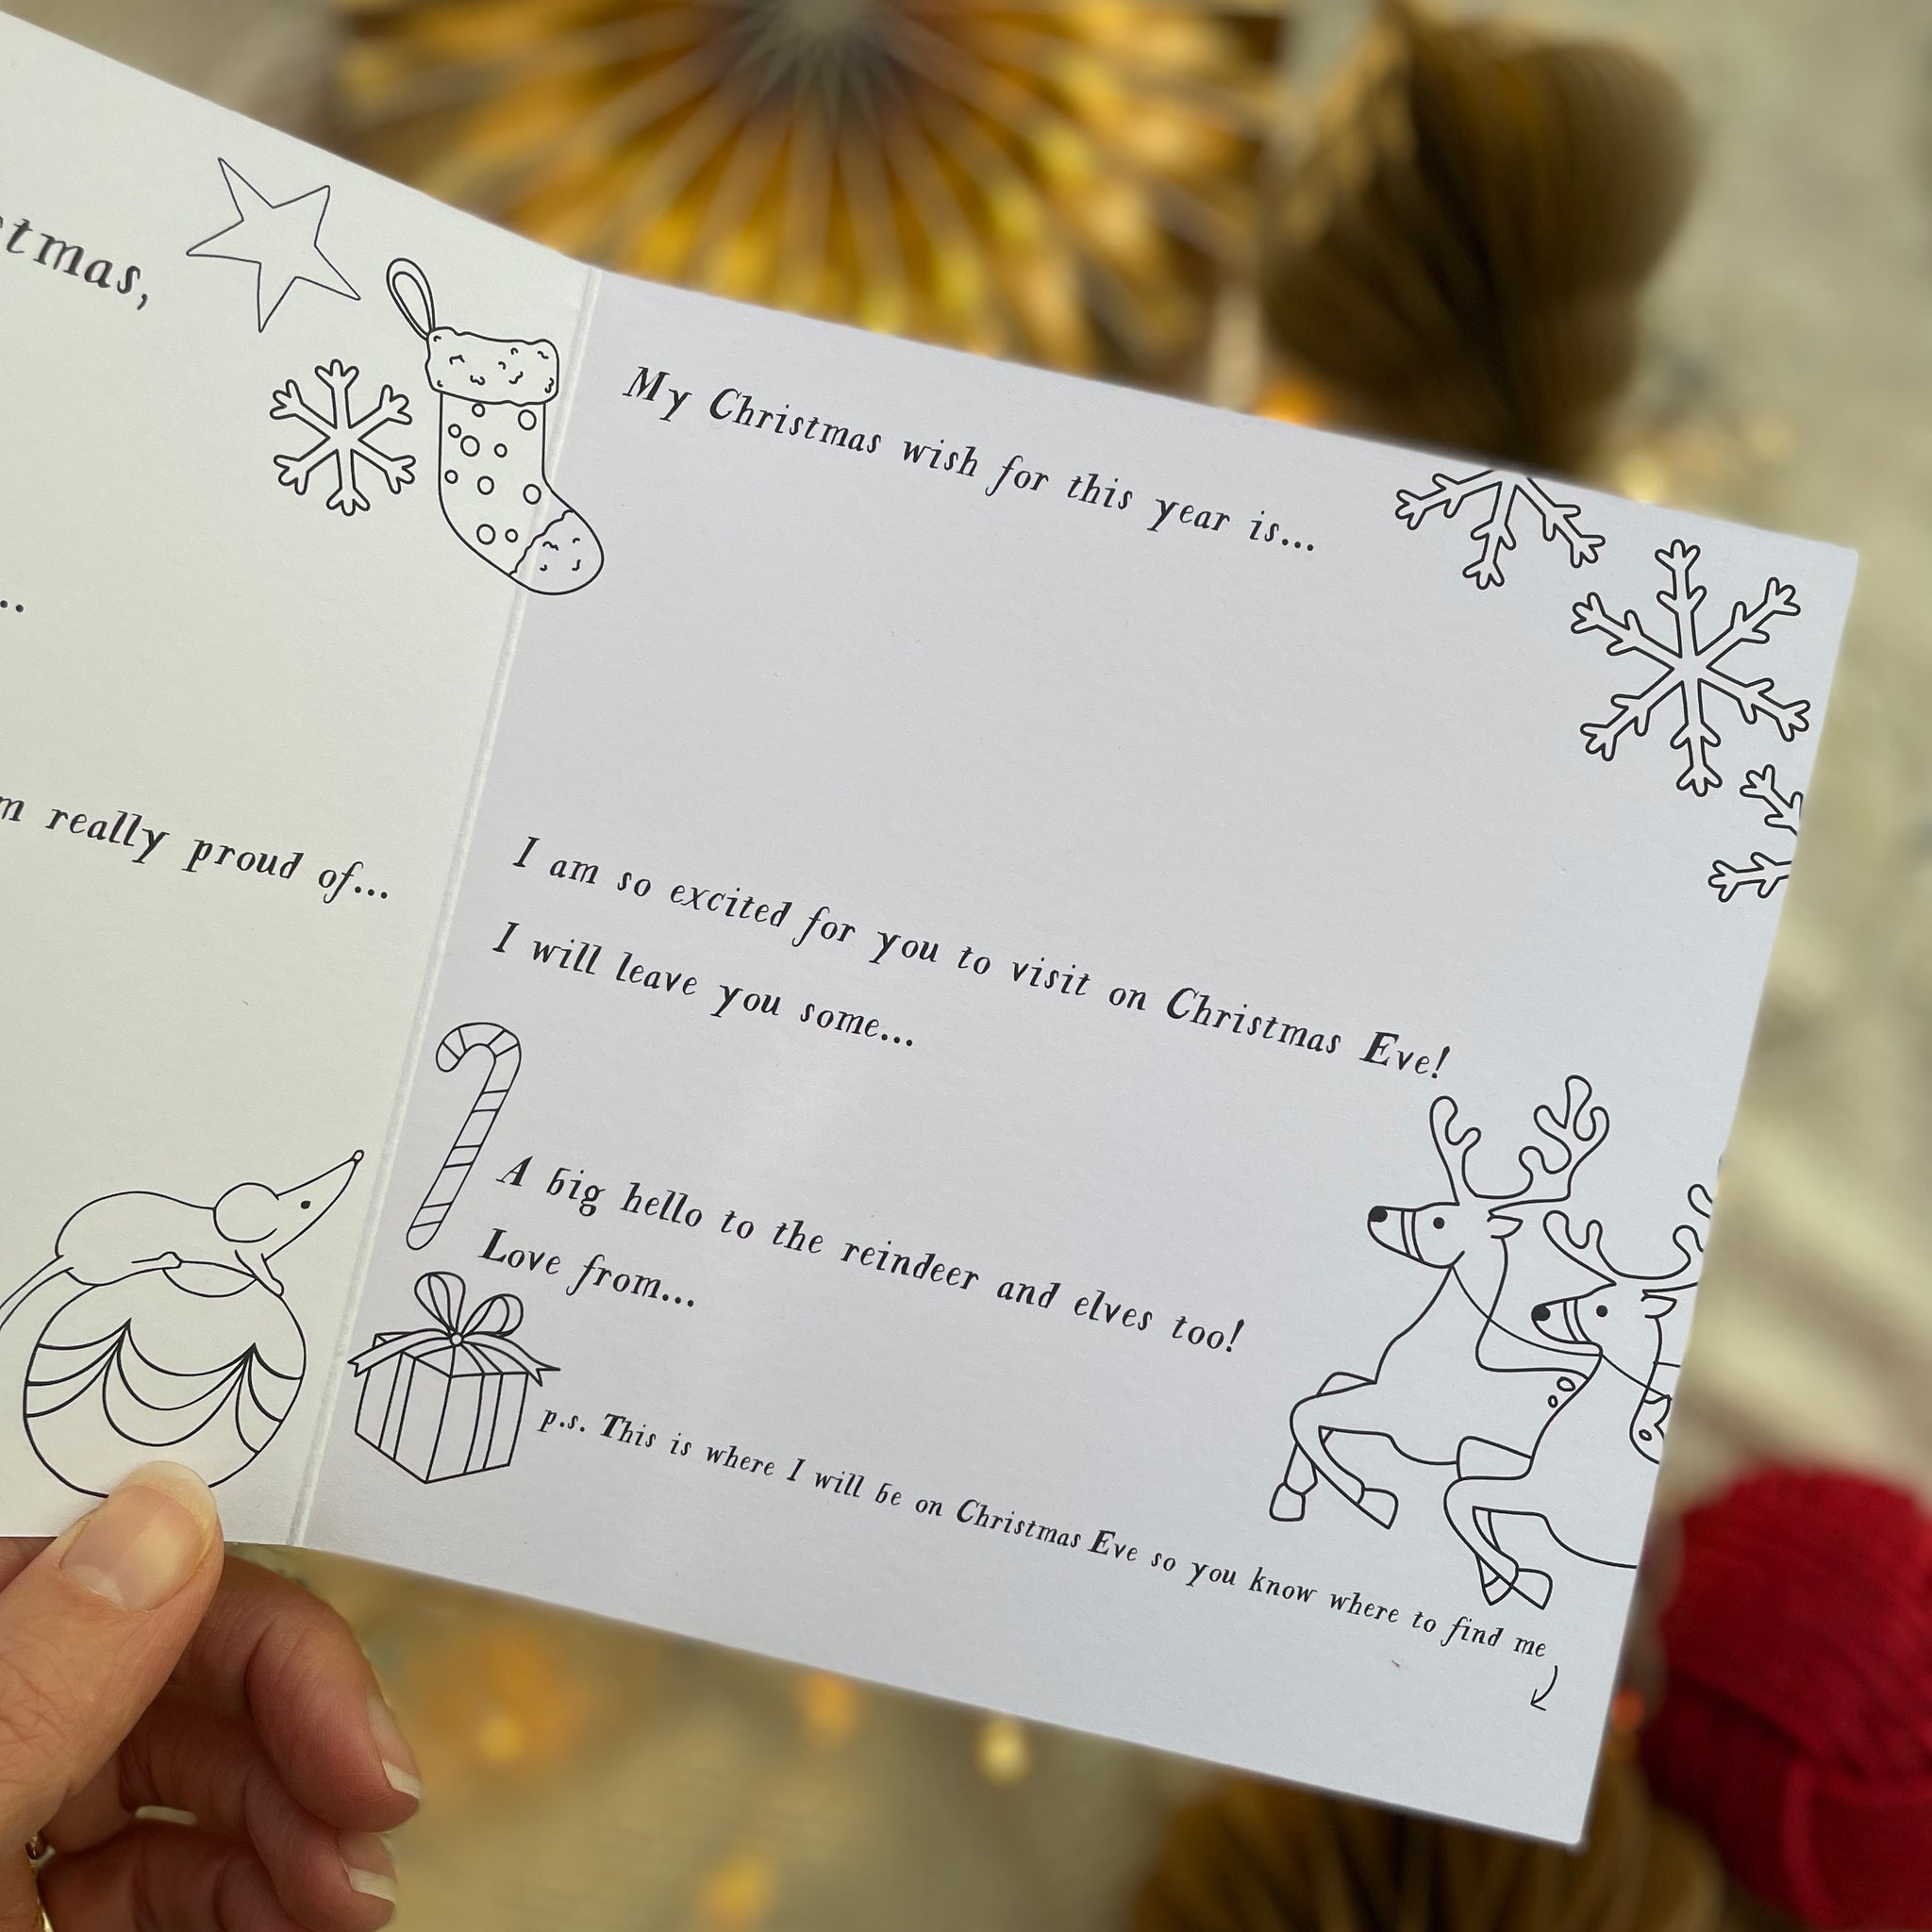 really proud of...
My Christmas wish for this year is...
I am so excited for you to visit on Christmas Eve!
I will leave you some...
A big hello to the reindeer and elves too!
Love from...
p.s. This is where I will be on Christmas Eve so you know where to find me